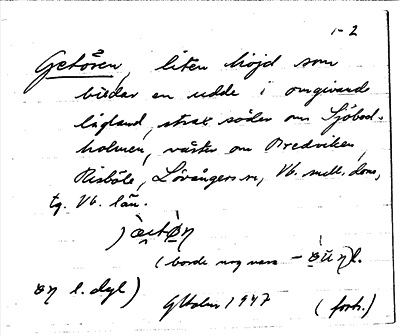 1-2
Getören, liten höjd som
bildar en udde i omgivande
lågland, strax söder om Sjöbod-
holmen, väster om Bredviken,
Risböle, Lövångers sn, Vb. mell. doms,
tg. Vb. län.
(borde nog vara
l. dyl)
1947 (forts.)